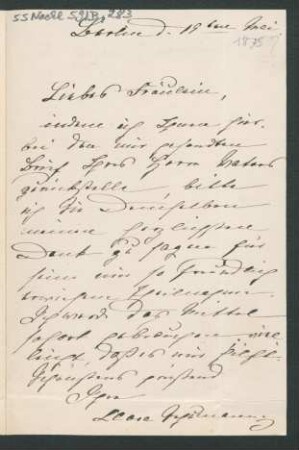 Berlin d. 19ten Mai
1875
Liebes Fräulein,
indem ich Ihnen hier-
bei den mir gesandten
Brief Ihres Herrn Vaters
zurückstelle, bitte
ich Sie Demselben
meinen herzlichsten
Dank zu sagen für
seine mir so freundlich
erwiesene Theilnahme.
Ich werde das Mittel
sofort gebrauchen
daß es mir
grüßend
Ihre
Clara Schumann